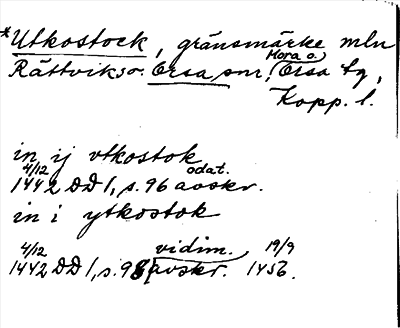 *Utkostock, gränsmärke mln
Rättvik so. Orsa snr, (Mora o. Orsa tg,
Kopp. l.
in ij vtkostok
4/12 1442 DD 1, s. 96 odat. avskr.
in i ytkostok
4/12 1442 DD 1, s. 98 vidim. avskr. 19/9 1456.